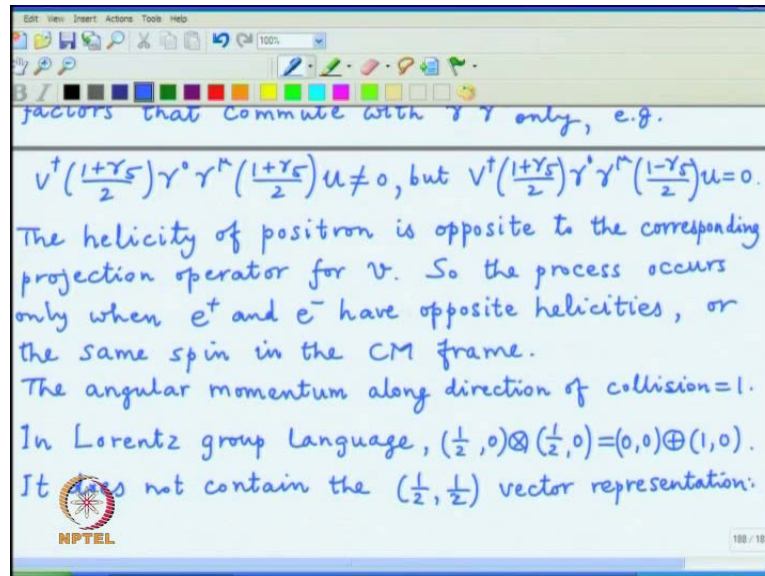 Edit View Insert Actions Tools Help
100%
B I
factors that commute with γ γ only, e.g.
v†((1+γ5)/2)γ⁰γ^μ((1+γ5)/2)u≠0, but v†((1+γ5)/2)γ⁰γ^μ((1-γ5)/2)u=0.
The helicity of positron is opposite to the corresponding
projection operator for v. So the process occurs
only when e⁺ and e⁻ have opposite helicities, or
the same spin in the CM frame.
The angular momentum along direction of collision=1.
In Lorentz group language, (1/2,0)⊗(1/2,0)=(0,0)⊕(1,0).
It does not contain the (1/2,1/2) vector representation.
NPTEL
188 / 18